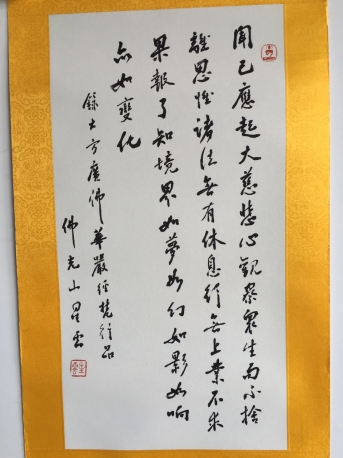 聞已應起大慈悲心觀察衆生而不捨
離思惟諸法無有休息行無上業不求
果報了知境界如夢如幻如影如响
亦如變化
錄大方廣佛華嚴經梵行品
佛光山星雲